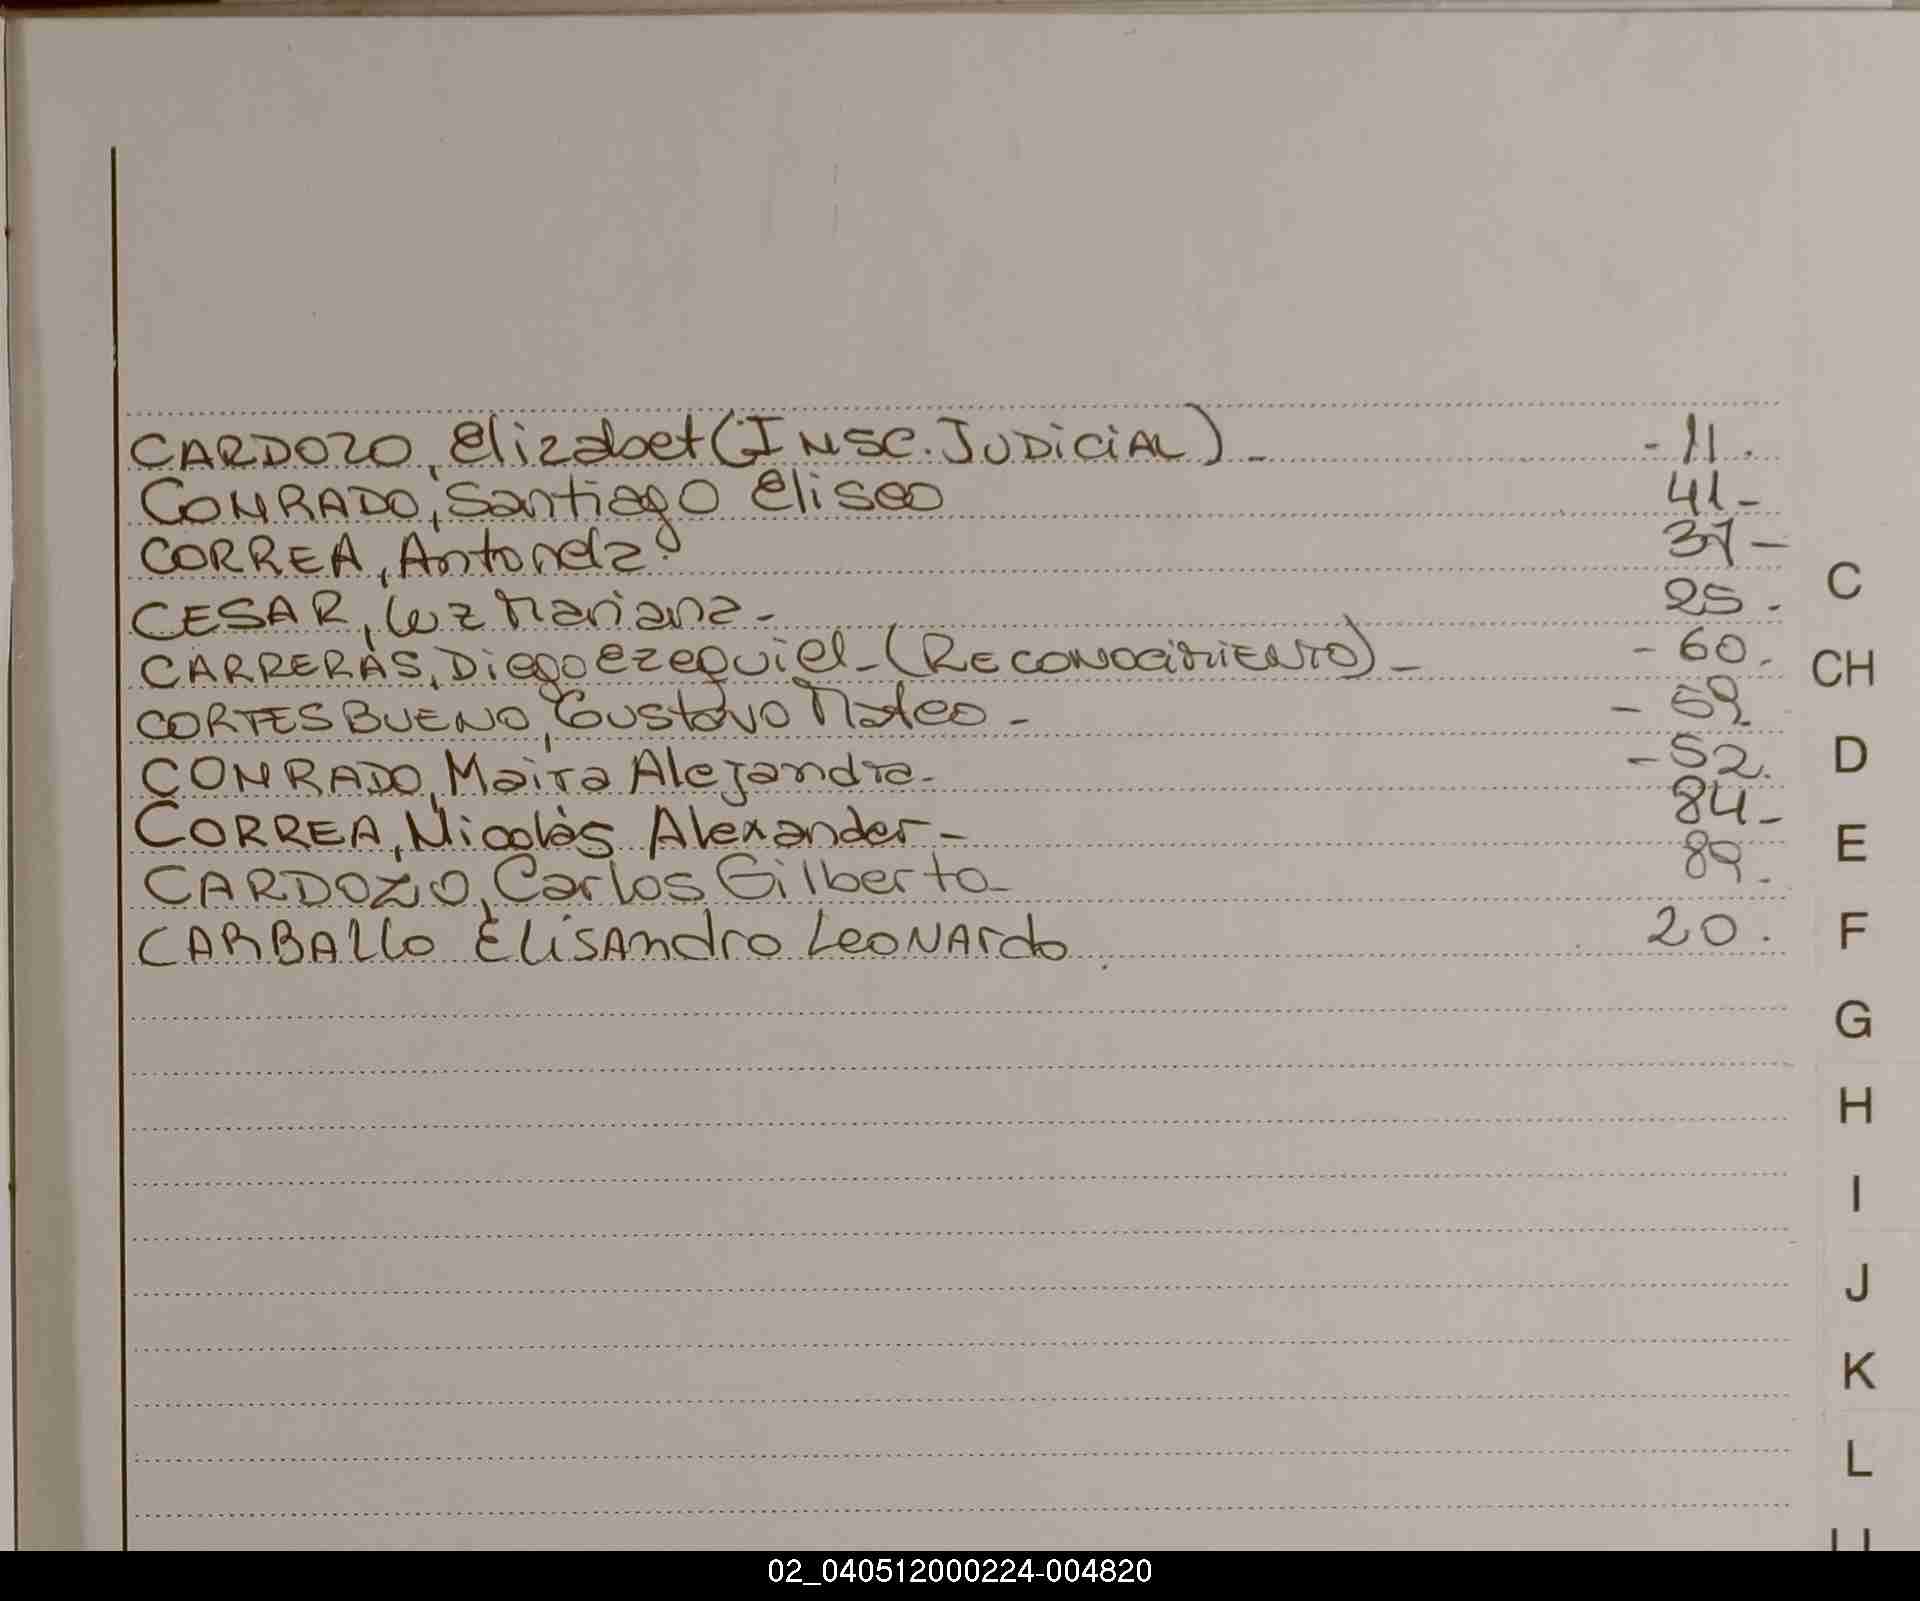 CARDOZO, Elizabet (INSC. JUDICIAL) - - 11.
CONRADO, Santiago Eliseo 41 -
CORREA, Antonela. 37 -
CESAR, Luz Mariana - 25.
CARRERAS, Diego Ezequiel - (RECONOCIMIENTO) - - 60.
CORTES BUENO, Gustavo Mateo - - 59
CONRADO, Maira Alejandra - - 52.
CORREA, Nicolás Alexander - 84 -
CARDOZO, Carlos Gilberto - 89.
CARBALLO ELISANdro LeoNArdo. 20.
C
CH
D
E
F
G
H
I
J
K
L
02_040512000224-004820